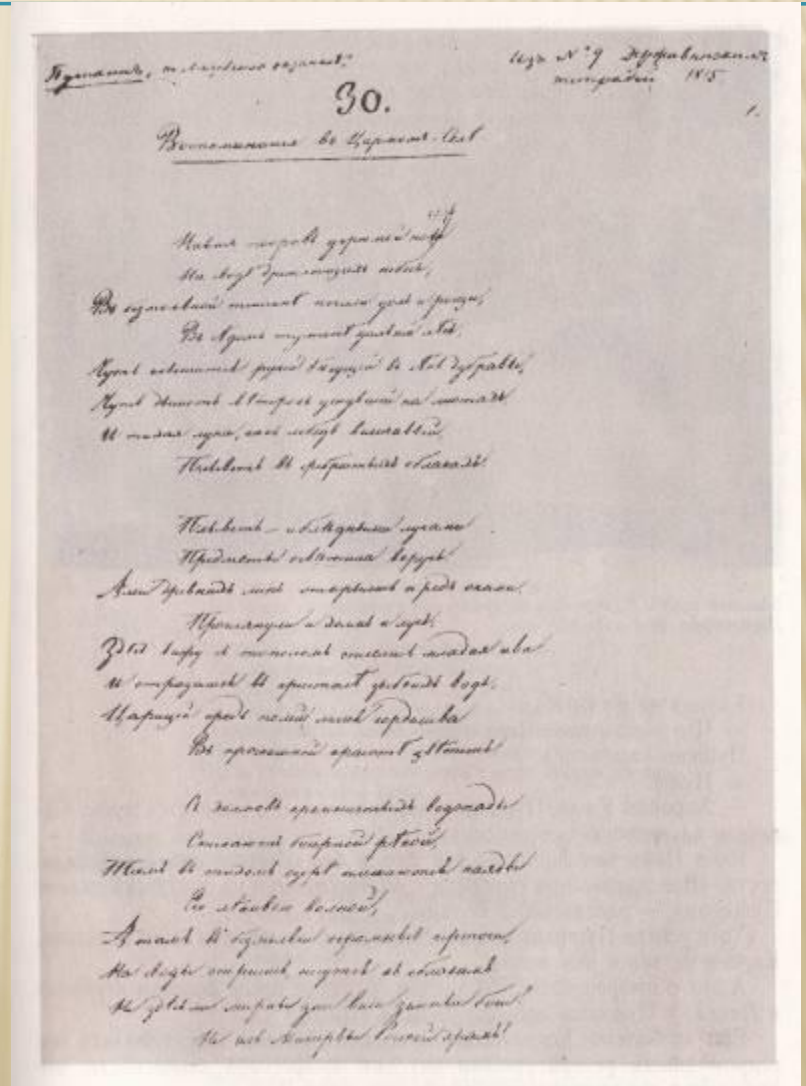 Пушкинъ,
Изъ N° 9 Державинскихъ
тетрадей 1815
1.
30.
Воспоминанія въ Царскомъ-Селѣ
Нависъ покровъ угрюмой нощи
На водѣ дремлющихъ небесъ,
Въ безмолвной тишинѣ почили долъ и рощи,
Въ сѣдомъ туманѣ дальній лѣсъ,
Чуть слышится ручей бѣгущій въ сѣнь дубравы,
Чуть дышетъ вѣтерокъ уснувшій на листахъ
И тихая луна, какъ лебедь величавый,
Плыветъ въ сребристыхъ облакахъ.
Плыветъ – и блѣдными лучами
Предметы освѣтила вдругъ
Алеи древнихъ липъ открылись предъ очами.
Проглянули и холмъ и лугъ,
Здѣсь вижу съ тополомъ сплелась младая ива
И отразилась въ кристалѣ зыбкихъ водъ,
Царицей средь полей лилея горделива
Въ роскошной красотѣ цвѣтетъ
Съ холмовъ кремнистыхъ водопады
Стекаютъ бисерной рѣкой,
Тамъ въ тихомъ озерѣ плескаются наяды
Его лѣнивою волной,
А тамъ въ безмолвіи огромные чертоги,
На своды опершись, несутся къ облакамъ
Не здѣсь ли мирны дни вели земные боги?
Не се ль Минервы Росской храмъ?